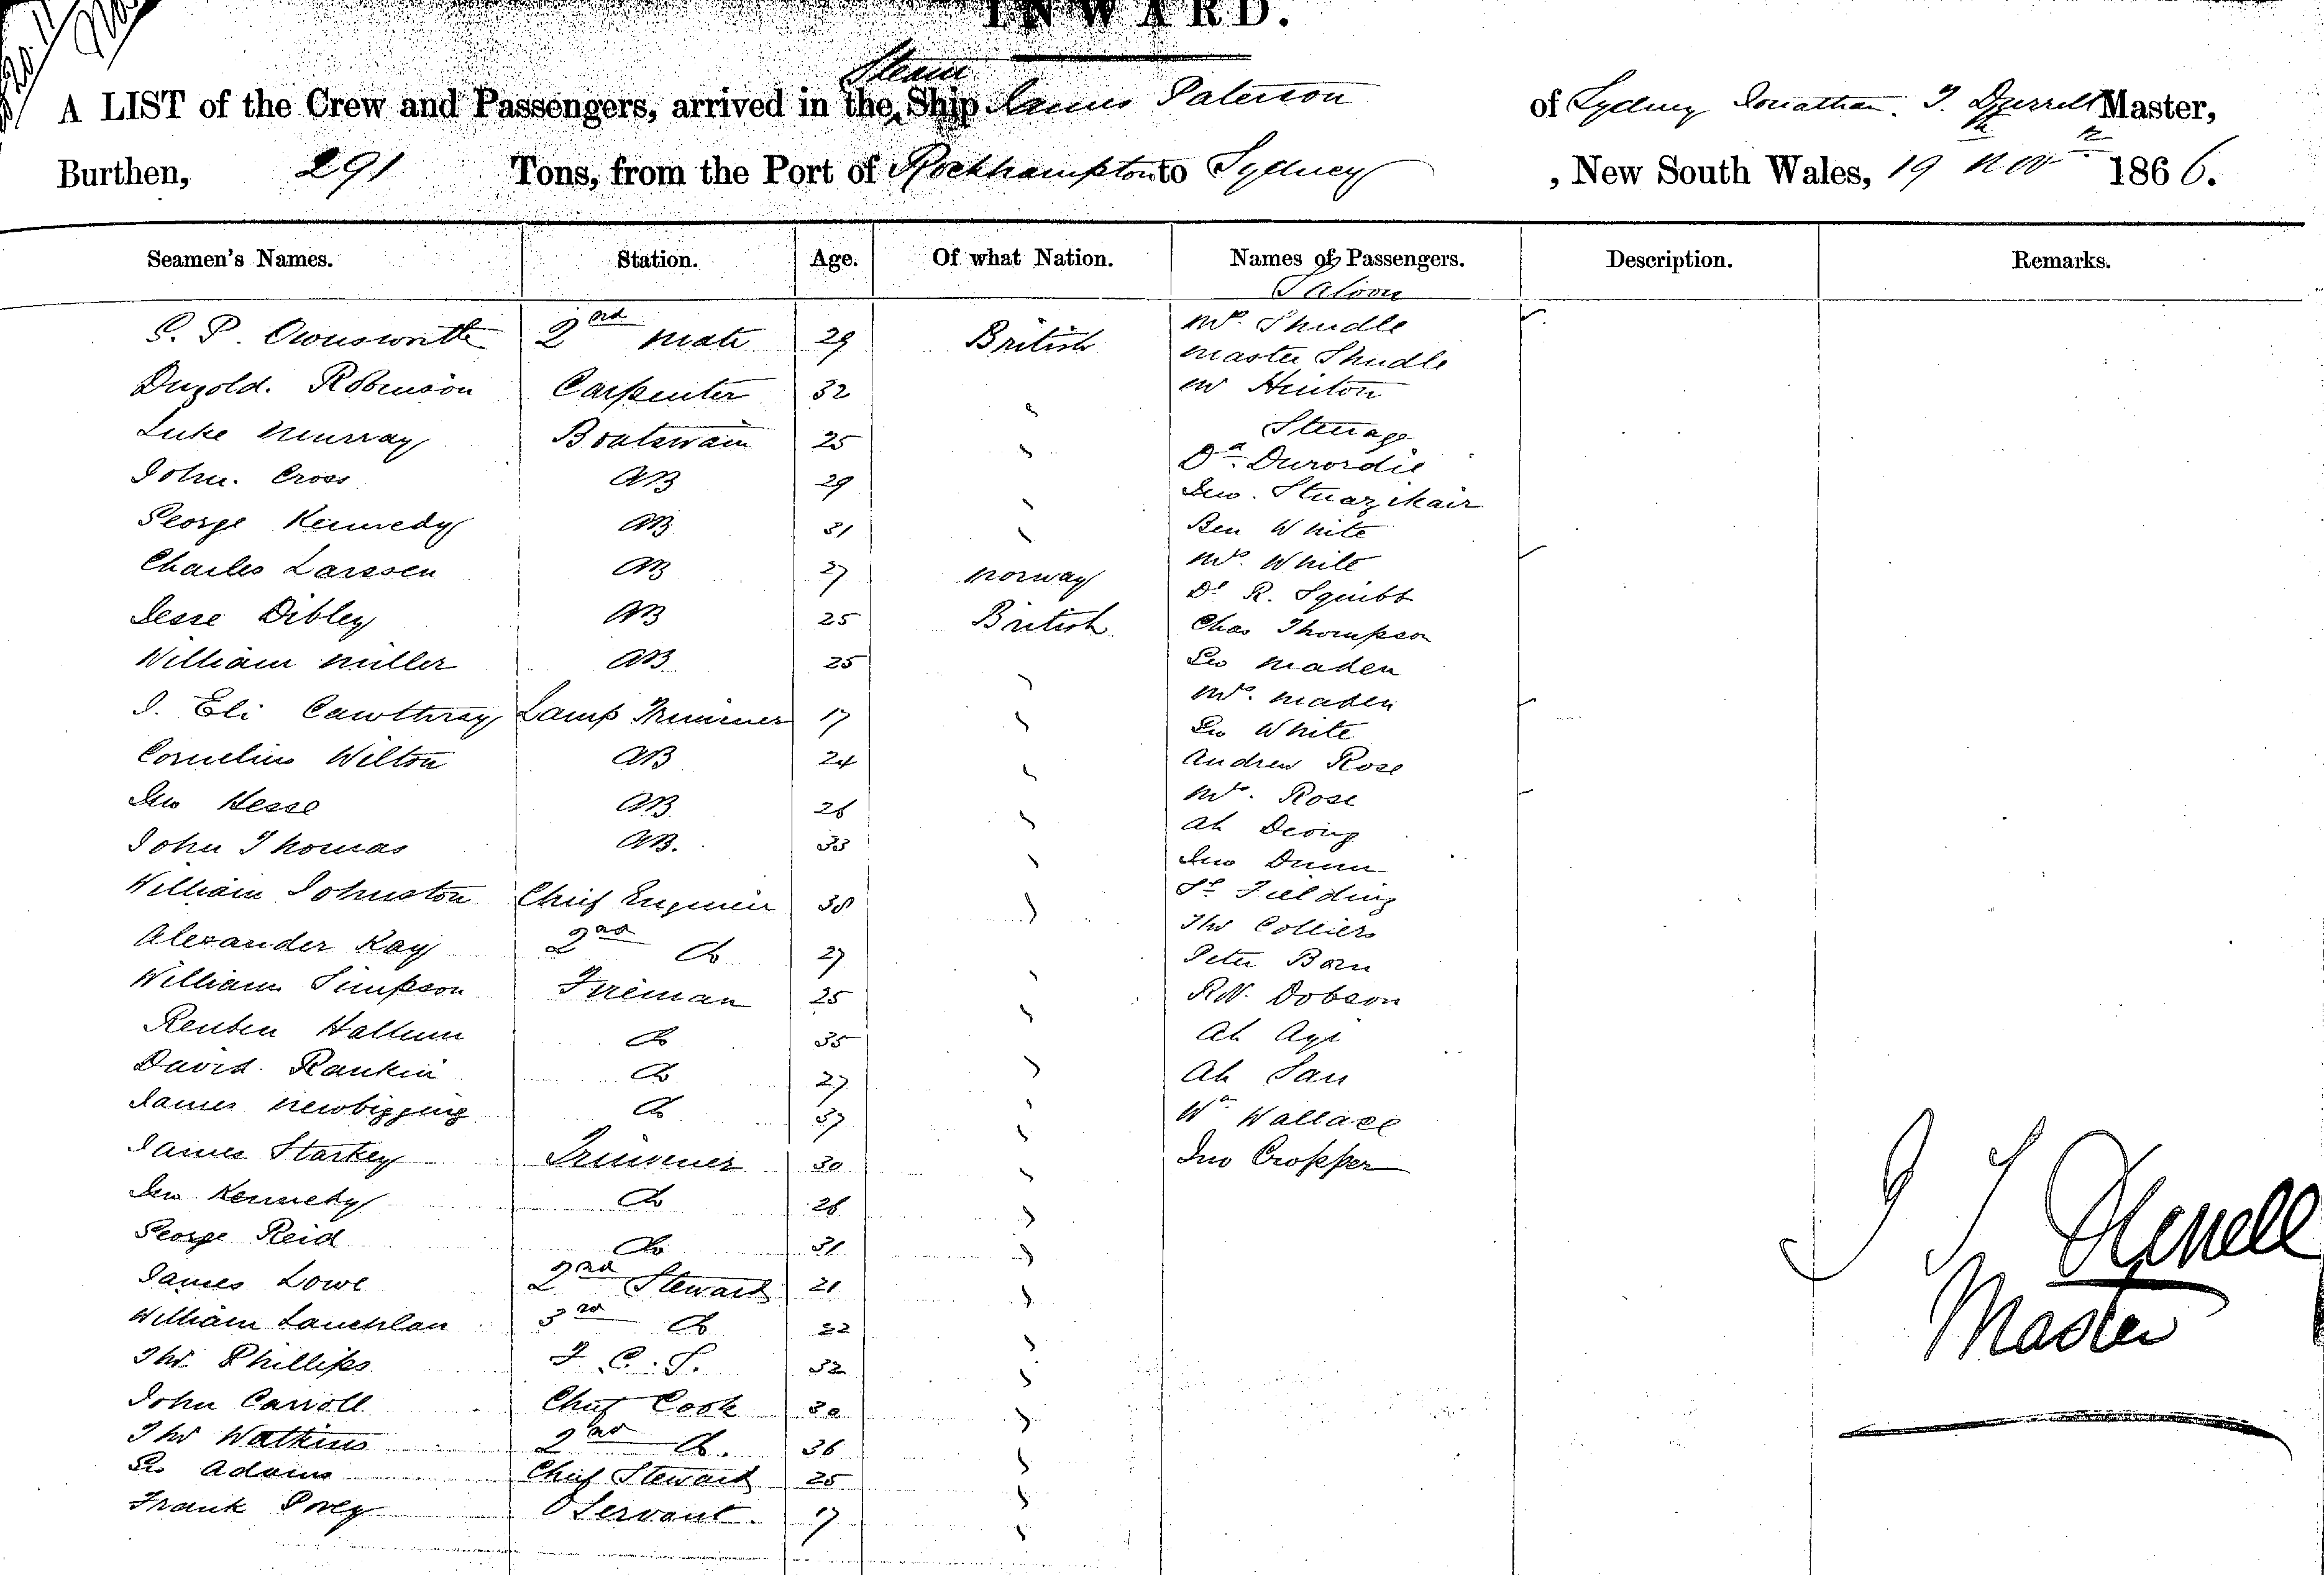 INWARD.
Steam
A LIST of the Crew and Passengers, arrived in the Ship James Paterson of Sydney Jonathan T. Master,
Burthen, 291 Tons, from the Port of Rockhampton to Sydney, New South Wales, 19th Novr 1866.
Seamen's Names. Station. Age. Of what Nation. Names of Passengers. Description. Remarks.
Saloon
2nd Mate 29 British Mrs. Thudle
Master Thudle
Dugold. Robinson Carpenter 32 " Mr Hinton
Steerage
Luke Murray Boatswain 25 "
John. Cross AB 29 " Jno.
George Kennedy AB 31 " Ben White
Mrs. White
Charles Larssen AB 27 Norway R. Squibb
Jesse Dibley AB 25 British Chas Thompson
William Miller AB 25 " Geo Maden
Mrs. Maden
J. Eli Cawthray Lamp Trimmer 17 " Geo White
Cornelius Wilton AB 24 " Andrew Rose
Jno Hesse AB 26 " Mrs. Rose
Ah
John Thomas AB. 33 " Jno Dunn
William Johnston Chief Engineer 38 " Fielding
Thos Colliers
Alexander Kay 2nd Do 27 " Peter
William Simpson Fireman 25 " Dobson
Reuben Hallum Do 35 " Ah
David. Rankin Do 27 " Ah San
James Newbigging Do 37 " Wm Wallace
James Starkey Trimmer 30 " Jno Cropper
Jno Kennedy Do 26 "
George Reid Do 31 "
James Lowe 2nd Steward 21 "
William Lauchlan 3rd Do 22 "
Thos. Phillips F. C. S. 32 "
John Carroll Chief Cook 30 "
Thos Watkins 2nd Do. 36 "
Geo Adams Chief Steward 25 "
Frank Servant. 17 "
J T
Master